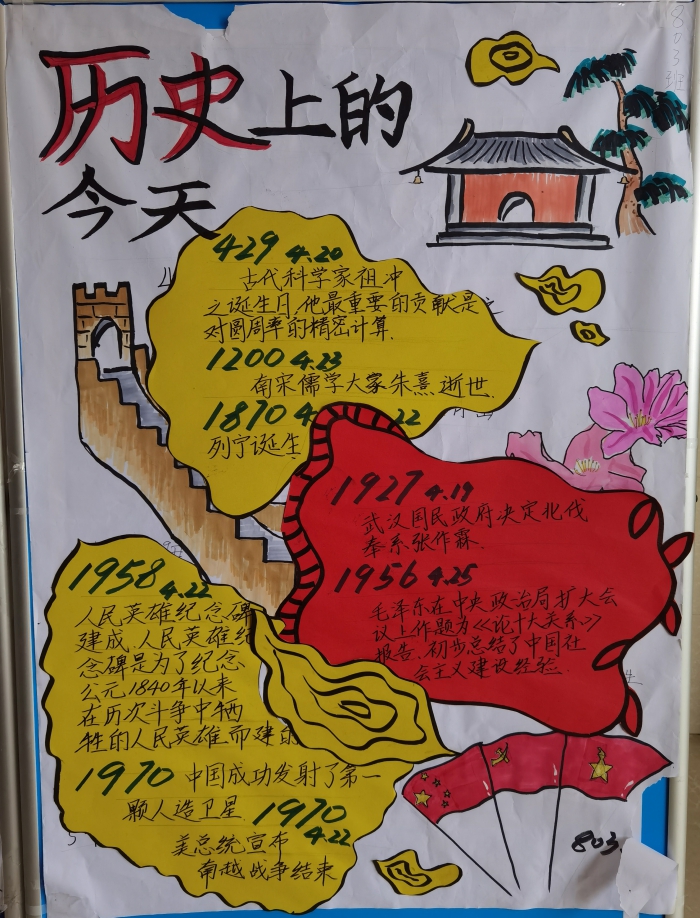 803班
历史上的
今天
429 4.20
古代科学家祖冲
之诞生日,他最重要的贡献是
对圆周率的精密计算.
1200 4.23
南宋儒学大家朱熹逝世.
1870 4.22
列宁诞生
1927 4.19
武汉国民政府决定北伐
奉系张作霖.
1956 4.25
毛泽东在中央政治局扩大会
议上作题为《论十大关系》
报告、初步总结了中国社
会主义建设经验.
1958 4.22
人民英雄纪念碑
建成.人民英雄纪
念碑是为了纪念
公元1840年以来
在历次斗争中牺
牲的人民英雄而建的
1970 中国成功发射了第一
颗人造卫星. 1970
4.22
美总统宣布
南越战争结束
803.